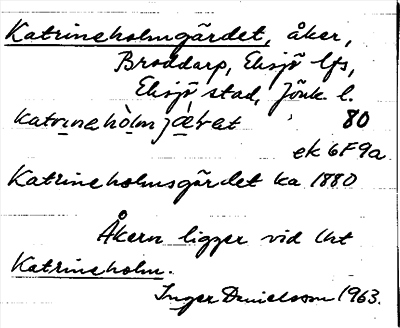 Katrineholmgärdet, åker,
Broddarp, Eksjö lfs,
Eksjö stad, Jönk. l.
80
ek 6F9a
Katrineholmsgärdet ka 1880
Åkern ligger vid lht
Katrineholm.
Inger Danielsson 1963.